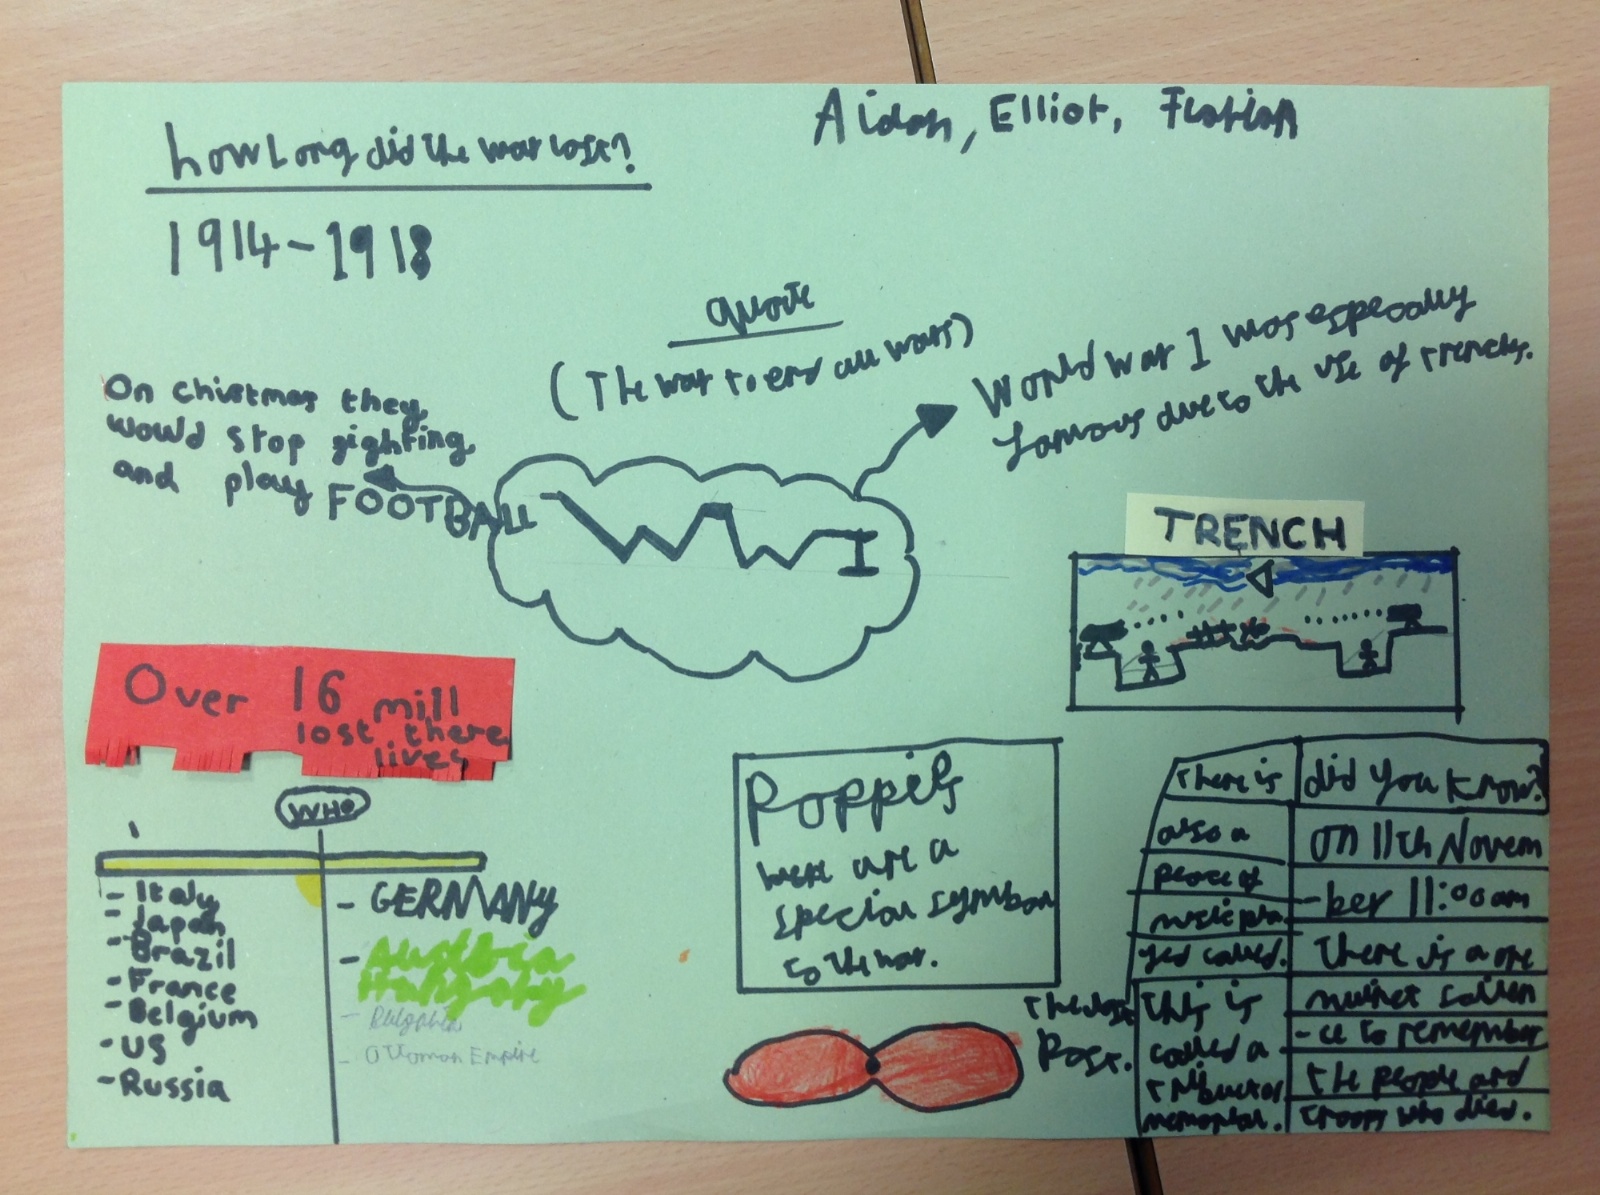 Aidan, Elliot, Florian
how Long did the war last?
1914-1918
Quote
(The war to end all wars)
World war I was especially
famous due to the use of trenches.
On chistmas they
would stop fighting
and play FOOTBALL
WWI
TRENCH
Over 16 mill
lost there
lives
WHO
- Italy
- Japan
- Brazil
- France
- Belgium
- US
- Russia
- GERMANY
- Austria
Hungary
- Bulgaria
- Ottoman Empire
Poppies
were are a
special symbol
to the war.
did you know?
on 11th Novem
-ber 11:00am
there is a one
minet sillen
-ce to remember
the people and
troops who died.
There is
also a
peace of
music pla
yed called.
The last
Post.
This is
called a
memorial.